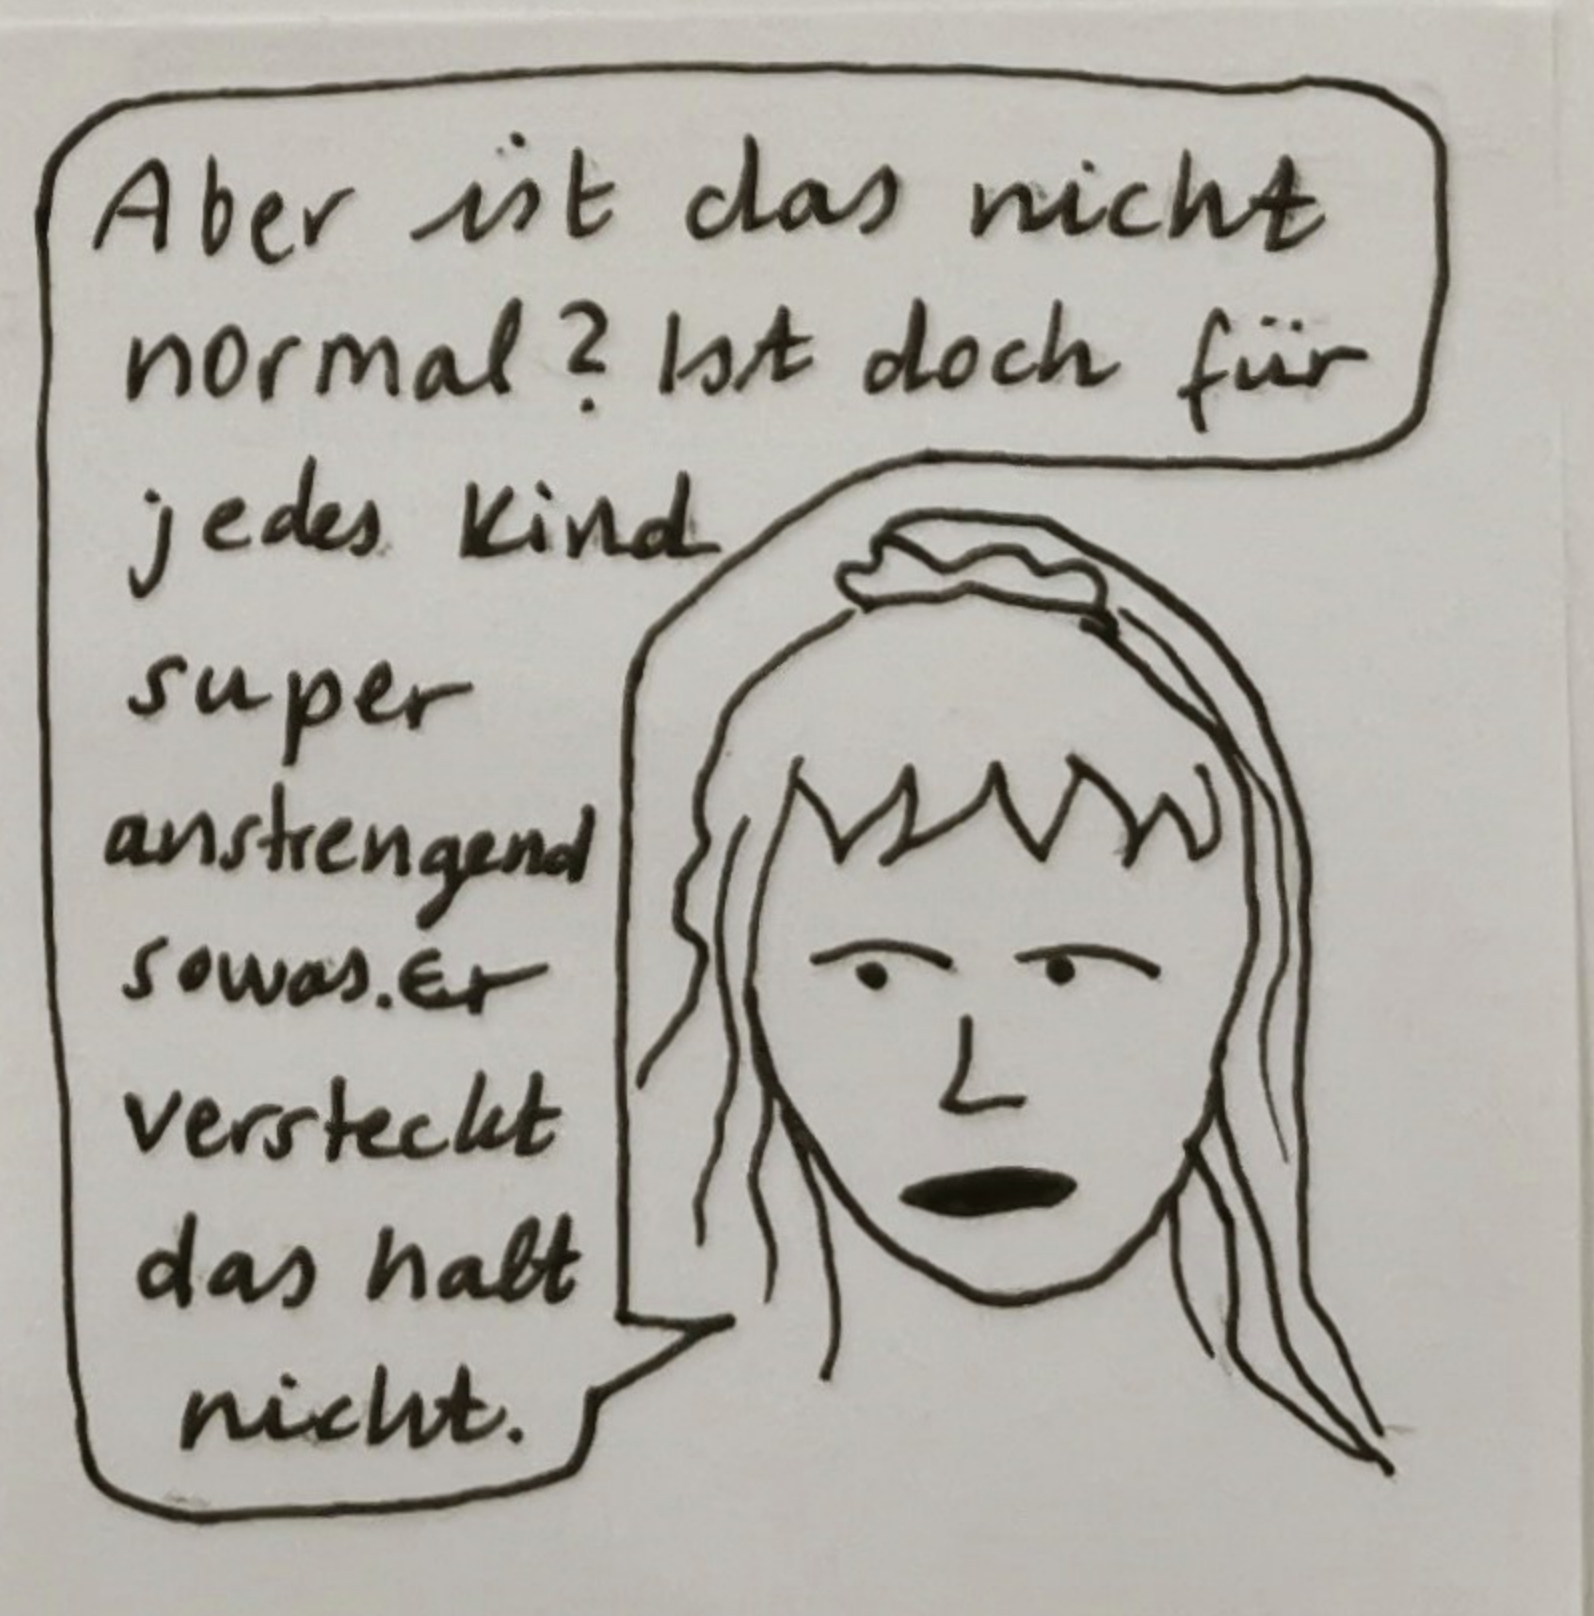 Aber ist das nicht
normal? Ist doch für
jedes Kind
super
anstrengend
sowas. Er
versteckt
das halt
nicht.